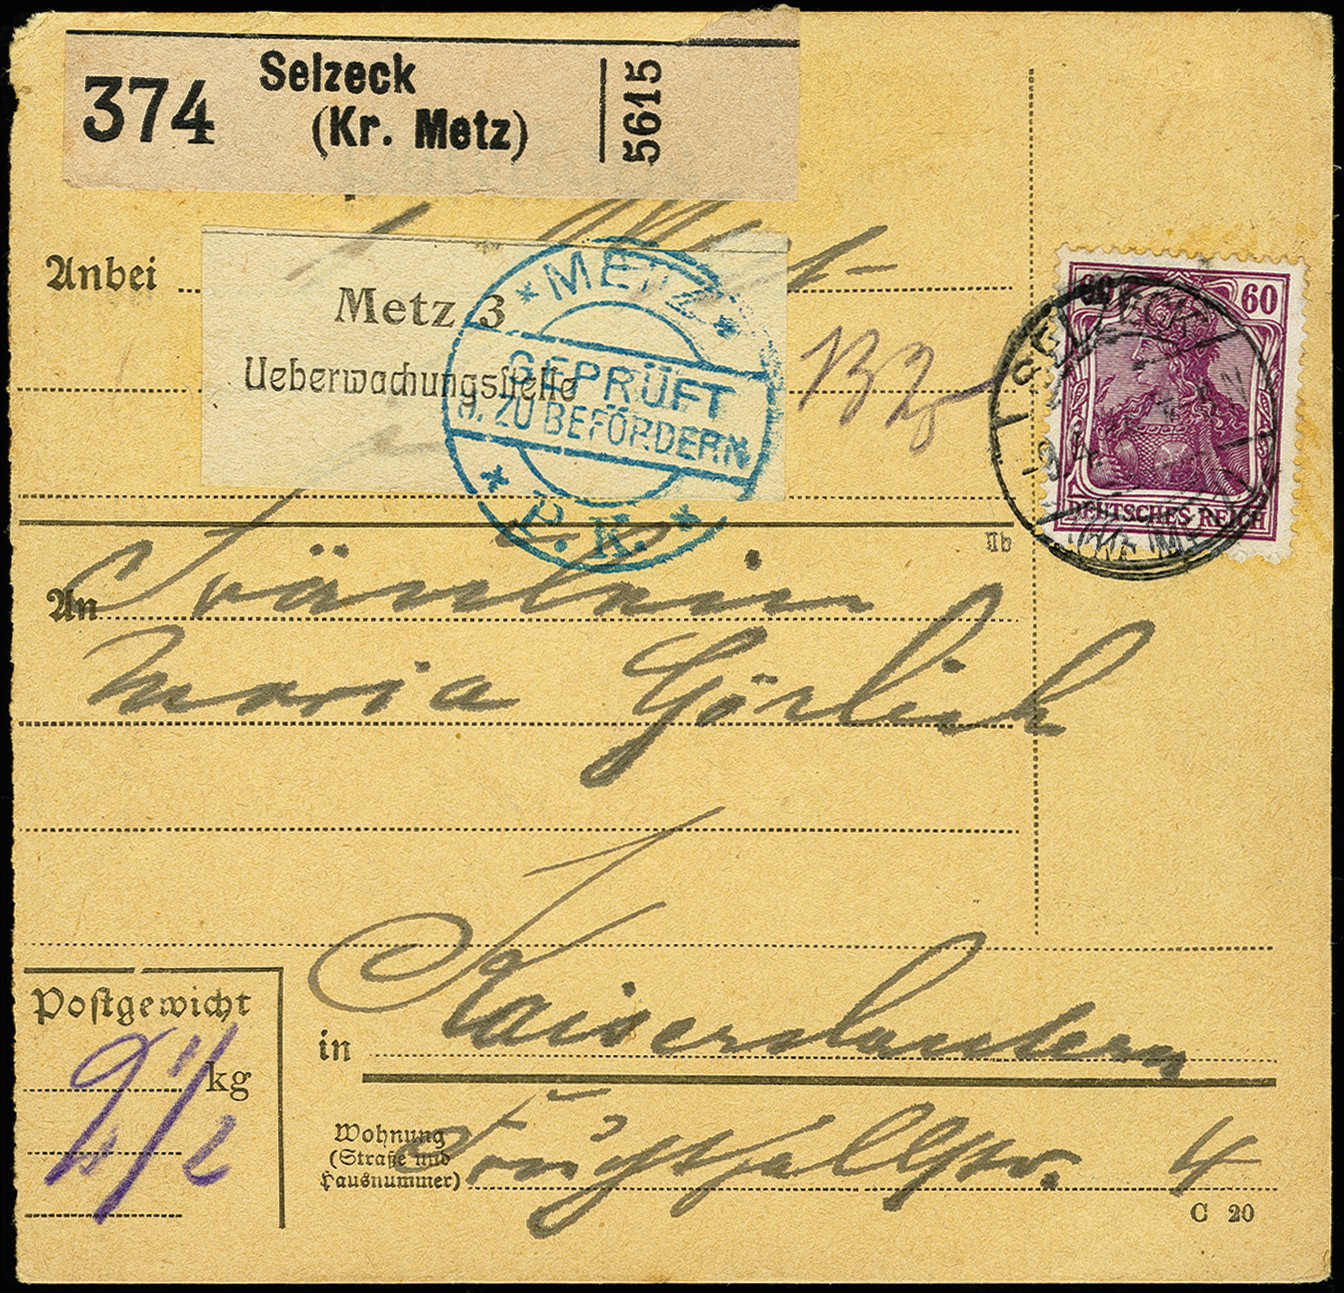 374
Selzeck
(Kr. Metz)
5615
Anbei
Metz 3
Ueberwachungsstelle
METZ
GEPRÜFT
u. ZU BEFÖRDERN
P. K.
60
60
DEUTSCHES REICH
SELZECK
IIb
An Fräulein
Maria Görlich
Postgewicht
9 1/2 kg
in Kaiserslautern
Wohnung
(Straße und
Hausnummer)
4
C 20